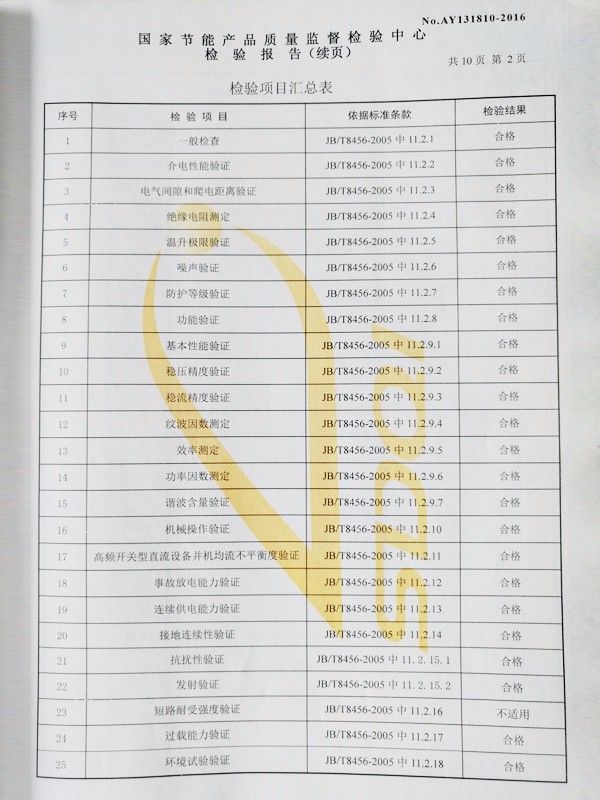 No.AY131810-2016
国家节能产品质量监督检验中心
检验报告(续页)
共10页 第2页
检验项目汇总表
序号 检验项目 依据标准条款 检验结果
1 一般检查 JB/T8456-2005 中 11.2.1 合格
2 介电性能验证 JB/T8456-2005 中 11.2.2 合格
3 电气间隙和爬电距离验证 JB/T8456-2005 中 11.2.3 合格
4 绝缘电阻测定 JB/T8456-2005 中 11.2.4 合格
5 温升极限验证 JB/T8456-2005 中 11.2.5 合格
6 噪声验证 JB/T8456-2005 中 11.2.6 合格
7 防护等级验证 JB/T8456-2005 中 11.2.7 合格
8 功能验证 JB/T8456-2005 中 11.2.8 合格
9 基本性能验证 JB/T8456-2005 中 11.2.9.1 合格
10 稳压精度验证 JB/T8456-2005 中 11.2.9.2 合格
11 稳流精度验证 JB/T8456-2005 中 11.2.9.3 合格
12 纹波因数测定 JB/T8456-2005 中 11.2.9.4 合格
13 效率测定 JB/T8456-2005 中 11.2.9.5 合格
14 功率因数测定 JB/T8456-2005 中 11.2.9.6 合格
15 谐波含量验证 JB/T8456-2005 中 11.2.9.7 合格
16 机械操作验证 JB/T8456-2005 中 11.2.10 合格
17 高频开关型直流设备并机均流不平衡度验证 JB/T8456-2005 中 11.2.11 合格
18 事故放电能力验证 JB/T8456-2005 中 11.2.12 合格
19 连续供电能力验证 JB/T8456-2005 中 11.2.13 合格
20 接地连续性验证 JB/T8456-2005 中 11.2.14 合格
21 抗扰性验证 JB/T8456-2005 中 11.2.15.1 合格
22 发射验证 JB/T8456-2005 中 11.2.15.2 合格
23 短路耐受强度验证 JB/T8456-2005 中 11.2.16 不适用
24 过载能力验证 JB/T8456-2005 中 11.2.17 合格
25 环境试验验证 JB/T8456-2005 中 11.2.18 合格